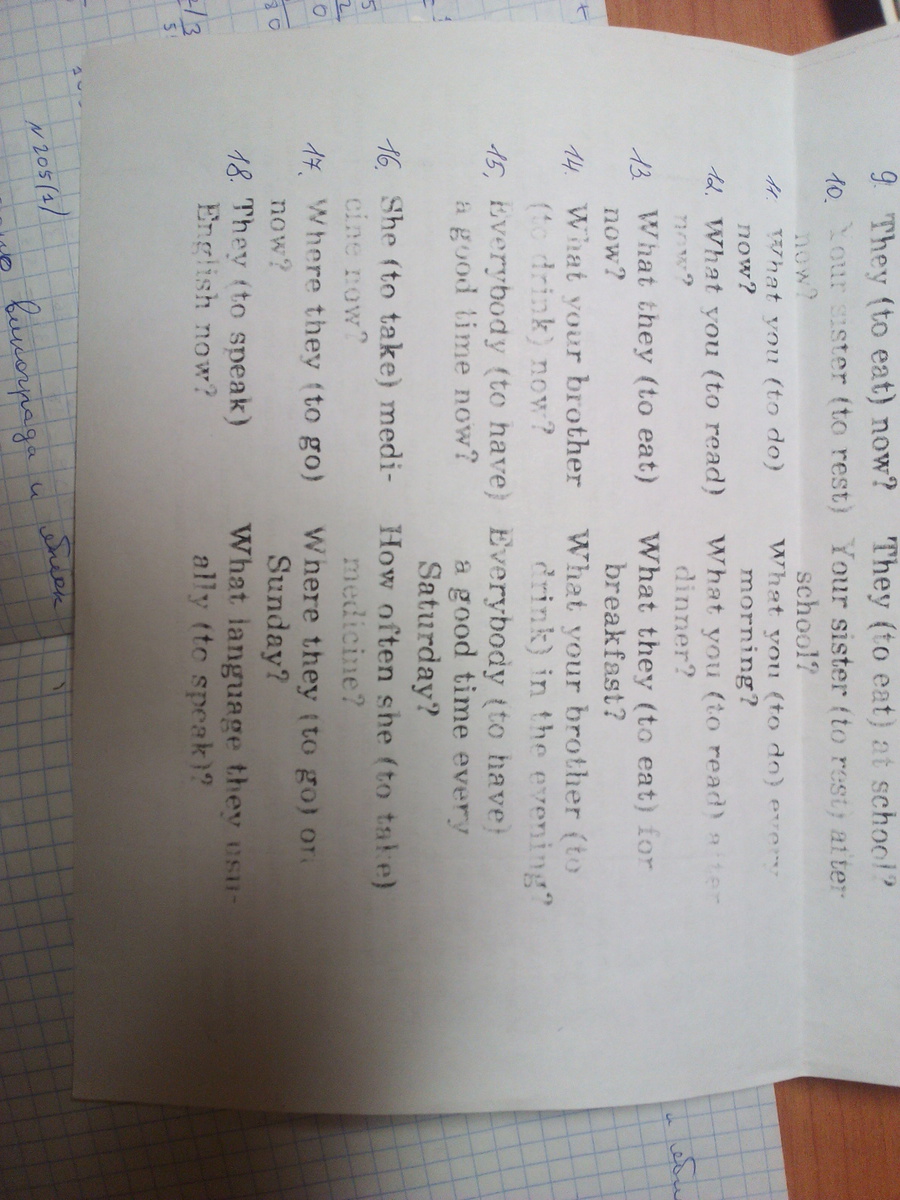 9. They (to eat) now? They (to eat) at school?
10. Your sister (to rest) Your sister (to rest) after
now? school?
11. What you (to do) What you (to do) every
now? morning?
12. What you (to read) What you (to read) after
now? dinner?
13. What they (to eat) What they (to eat) for
now? breakfast?
14. What your brother What your brother (to
(to drink) now? drink) in the evening?
15. Everybody (to have) Everybody (to have)
a good time now? a good time every
Saturday?
16. She (to take) medi- How often she (to take)
cine now? medicine?
17. Where they (to go) Where they (to go) on
now? Sunday?
18. They (to speak) What language they usu-
English now? ally (to speak)?
N 205(1)
винограда и яблок